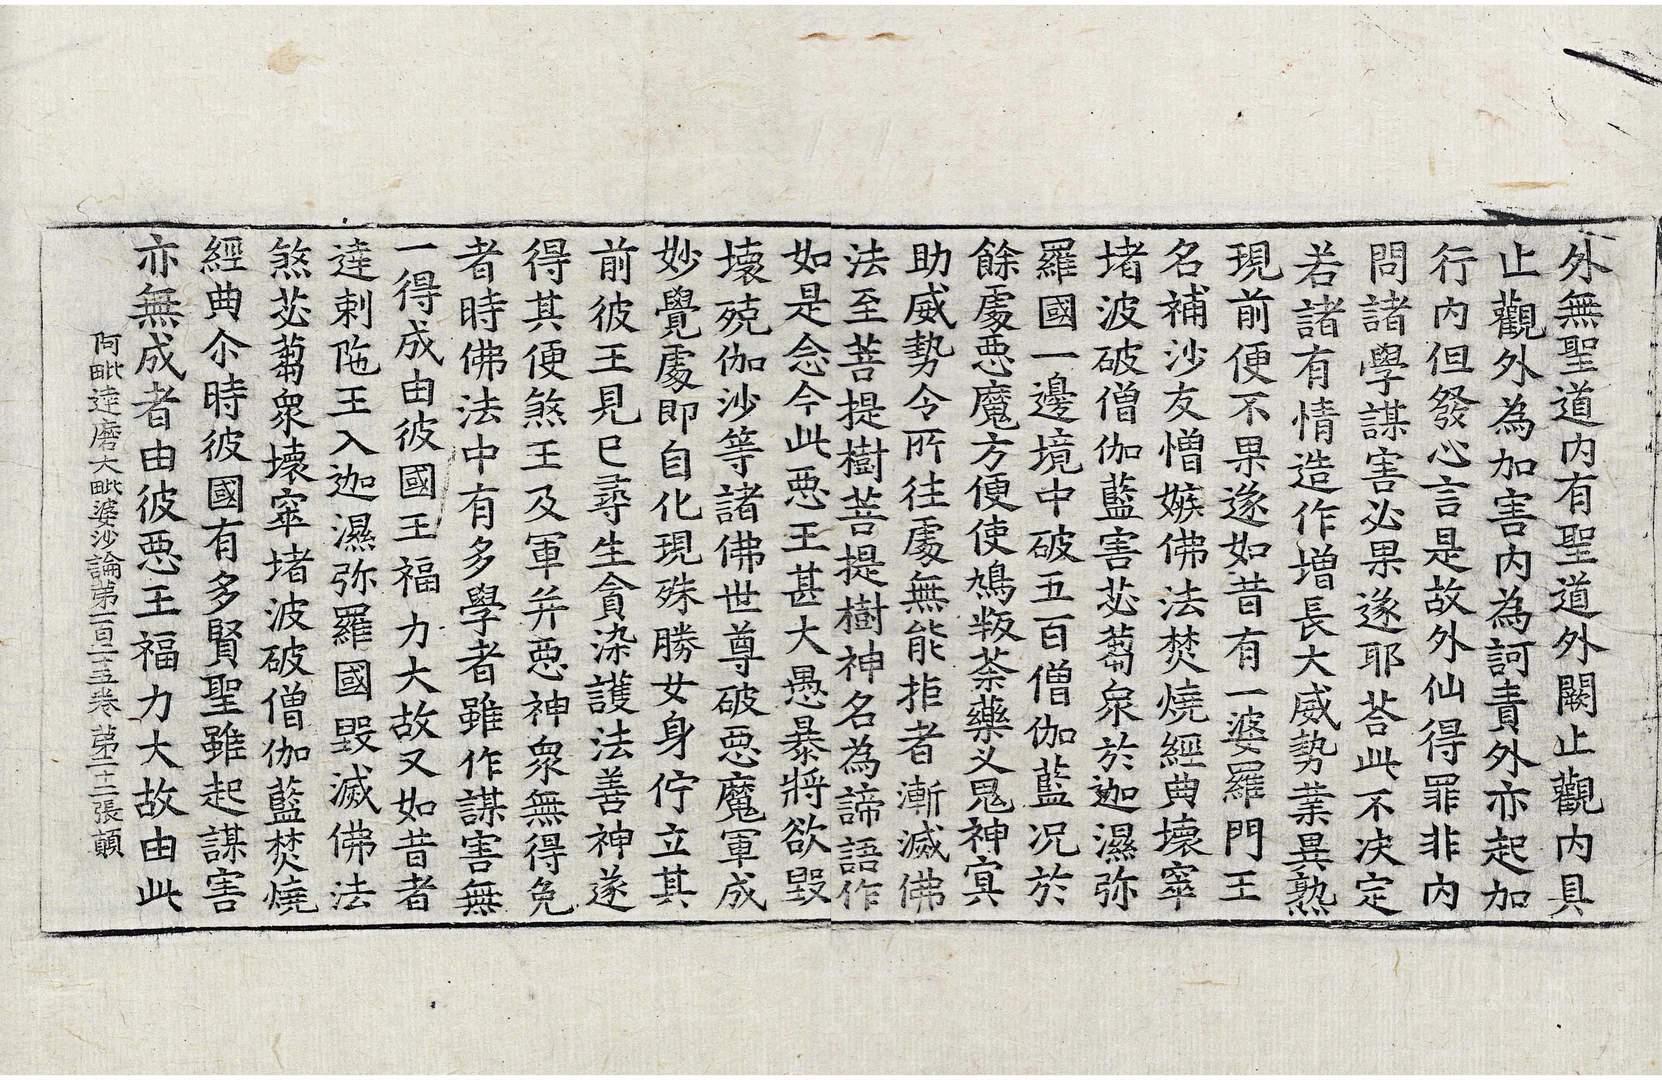 外無聖道內有聖道外闕止觀內具
止觀外為加害內為訶責外亦起加
行內但發心言是故外仙得罪非內
問諸學謀害必果遂耶荅此不決定
若諸有情造作增長大威勢業異熟
現前便不果遂如昔有一婆羅門王
名補沙友憎嫉佛法焚燒經典壞窣
堵波破僧伽藍害苾蒭衆於迦濕弥
羅國一邊境中破五百僧伽藍况於
餘處惡魔方便使鳩畔荼藥叉鬼神冥
助威勢令所往處無能拒者漸滅佛
法至菩提樹菩提樹神名為諦語作
如是念今此惡王甚大愚暴將欲毀
壞殑伽沙等諸佛世尊破惡魔軍成
妙覺處即自化現殊勝女身佇立其
前彼王見已尋生貪染護法善神遂
得其便煞王及軍并惡神衆無得免
者時佛法中有多學者雖作謀害無
一得成由彼國王福力大故又如昔者
達剌陁王入迦濕弥羅國毀滅佛法
煞苾蒭衆壞窣堵波破僧伽藍焚燒
經典尒時彼國有多賢聖雖起謀害
亦無成者由彼惡王福力大故由此
阿毗達磨大毗婆沙論第一百二十五卷 第十二張 顛